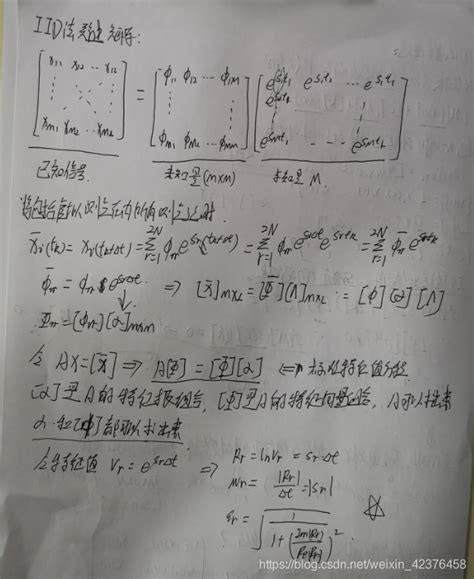 ITD法 数学矩阵:
[x₁₁ x₁₂ ... x₁₂ ; x_{m1} x_{m2} ... x_{mL}] = [φ₁₁ φ₁₂ ... φ_{1M} ; φ_{m1} φ_{m2} ... φ_{mm}] [e^{s₁t₁} e^{s₁t₂} ... e^{s₁t_L} ; e^{s_m t₁} ... e^{s_m t_L}]
已知信号 未知量(M×M) 未知量 M.
x̄ᵣ(t_k) = xᵣ(t_k+Δt) = Σ_{r=1}^{2N} φᵣ e^{sᵣ(t_k+Δt)} = Σ_{r=1}^{2N} φᵣ e^{sᵣΔt} e^{sᵣt_k} = Σ_{r=1}^{2N} φ̄ᵣ e^{sᵣt_k}
φ̄ᵣ = φᵣ e^{sᵣΔt} ⇒ [x̄]_{M×L} = [Φ̄][Λ]_{M×L} = [Φ][α][Λ]
Φ̄ᵣ = [φᵣ][α]_{m×m}
令 AX = [x̄] ⇒ A[Φ] = [Φ][α] ⇐ 标准特征值方程
[α]是A的特征值组合, [Φ]是A的特征向量组合, A可以求出来
α 和[Φ]都可以求出来
令特征值 Vᵣ = e^{sᵣΔt} ⇒ Rᵣ = lnVᵣ = sᵣΔt
wᵣ = |Rᵣ|/Δt = |sᵣ|
εᵣ = √(1/(1+(Im|Rᵣ|/Re|Rᵣ|)²))
https://blog.csdn.net/weixin_42376458